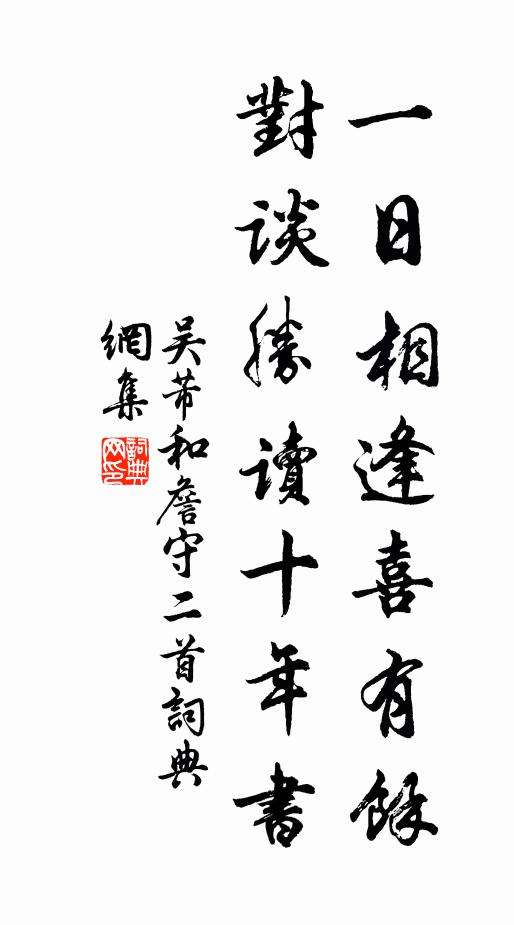 一日相逢喜有餘
對談勝讀十年書
吴芾和詹守二首詞典
網集
詞典
网印